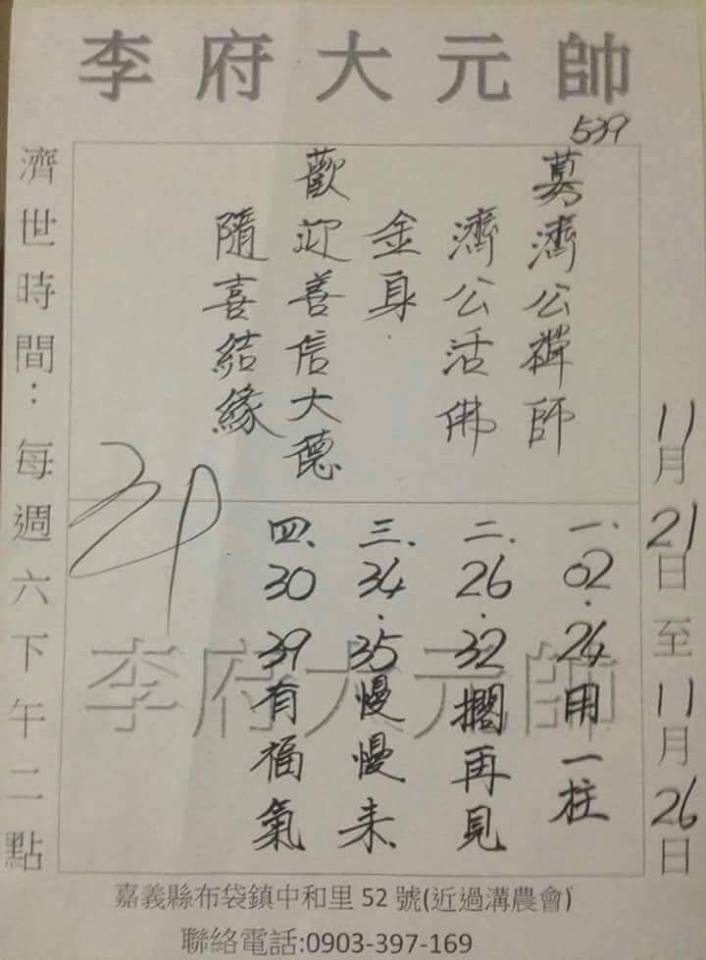 李府大元帥
539
11月21日至11月26日
募濟公禪師
濟公活佛
金身
歡迎善信大德
隨喜結緣
一.02.24用一柱
二.26.32擱再見
三.34.35慢慢来
四.30 39有福氣
李府大元帥
濟世時間：每週六下午二點
嘉義縣布袋鎮中和里52號(近過溝農會)
聯絡電話:0903-397-169